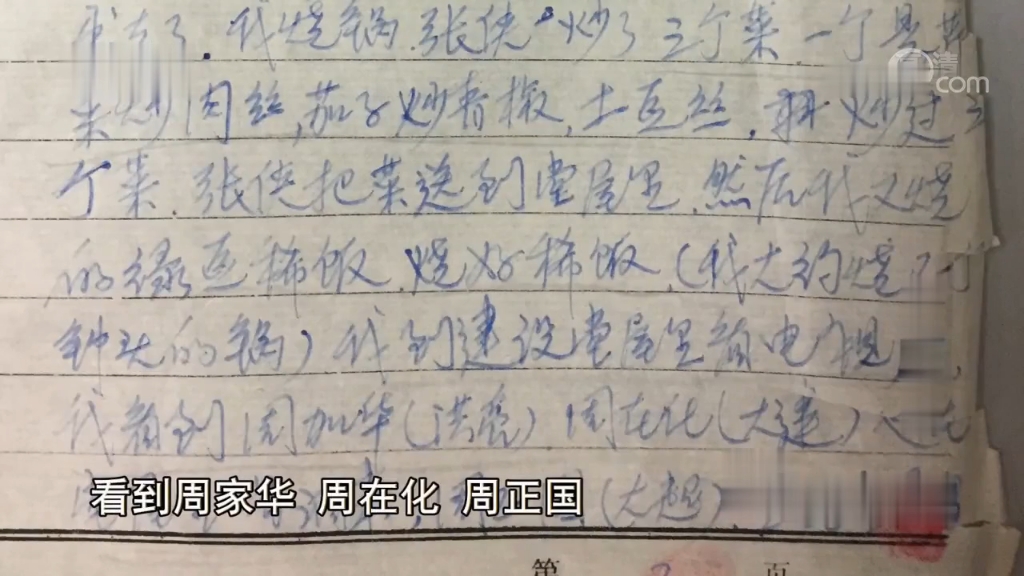 了.我烧锅.张侠炒了三个菜.一个是
炒肉丝,茄子炒青椒,土豆丝,炒过
个菜.张侠把菜送到堂屋里.然后我又烧
的绿豆稀饭.烧好稀饭,(我大约烧
钟头的锅)我到建设堂屋里看电视
我看到周加华(洪亮)周在化(大连)
(大超)
看到周家华 周在化 周正国
第 页
清
com